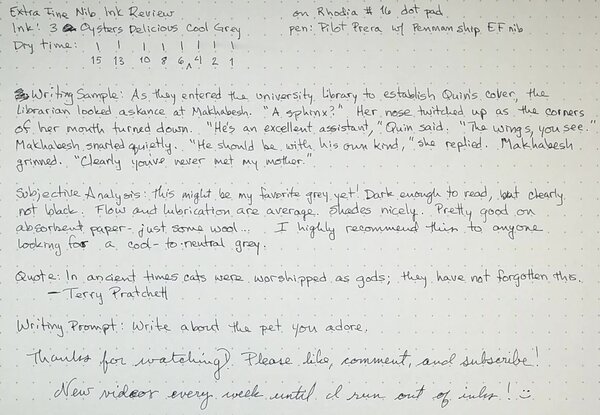 Extra Fine Nib Ink Review on Rhodia #16 dot pad
Ink: 3 Oysters Delicious Cool Grey pen: Pilot Prera w/ Penmanship EF nib
Dry time: | | | | | | | |
15 13 10 8 6 4 2 1
Writing Sample: As they entered the university library to establish Quin's cover, the
librarian looked askance at Makhabesh. "A sphinx?" Her nose twitched up as the corners
of her mouth turned down. "He's an excellent assistant," Quin said. "The wings, you see."
Makhabesh snarled quietly. "He should be with his own kind," she replied. Makhabesh
grinned. "Clearly you've never met my mother."
Subjective Analysis: this might be my favorite grey yet! Dark enough to read, but clearly
not black. Flow and lubrication are average. Shades nicely. Pretty good on
absorbent paper - just some wool... I highly recommend this to anyone
looking for a cool-to-neutral grey.
Quote: In ancient times cats were worshipped as gods; they have not forgotten this.
- Terry Pratchett
Writing Prompt: Write about the pet you adore.
Thanks for watching! Please like, comment, and subscribe!
New videos every week until I run out of inks! :)